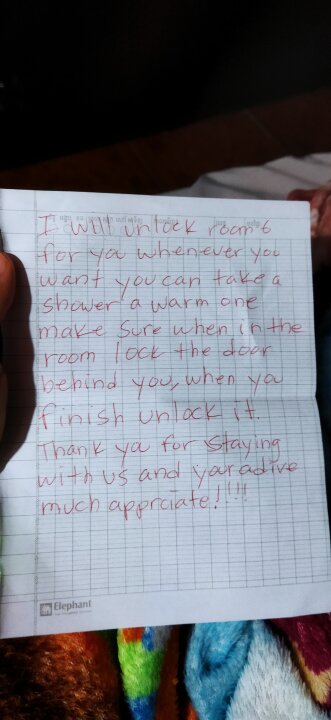 I will unlock room 6
for you whenever you
want you can take a
shower a warm one
make sure when in the
room lock the door
behind you, when you
finish unlock it.
Thank you for staying
with us and your adive
much apprciate!!!!
Elephant